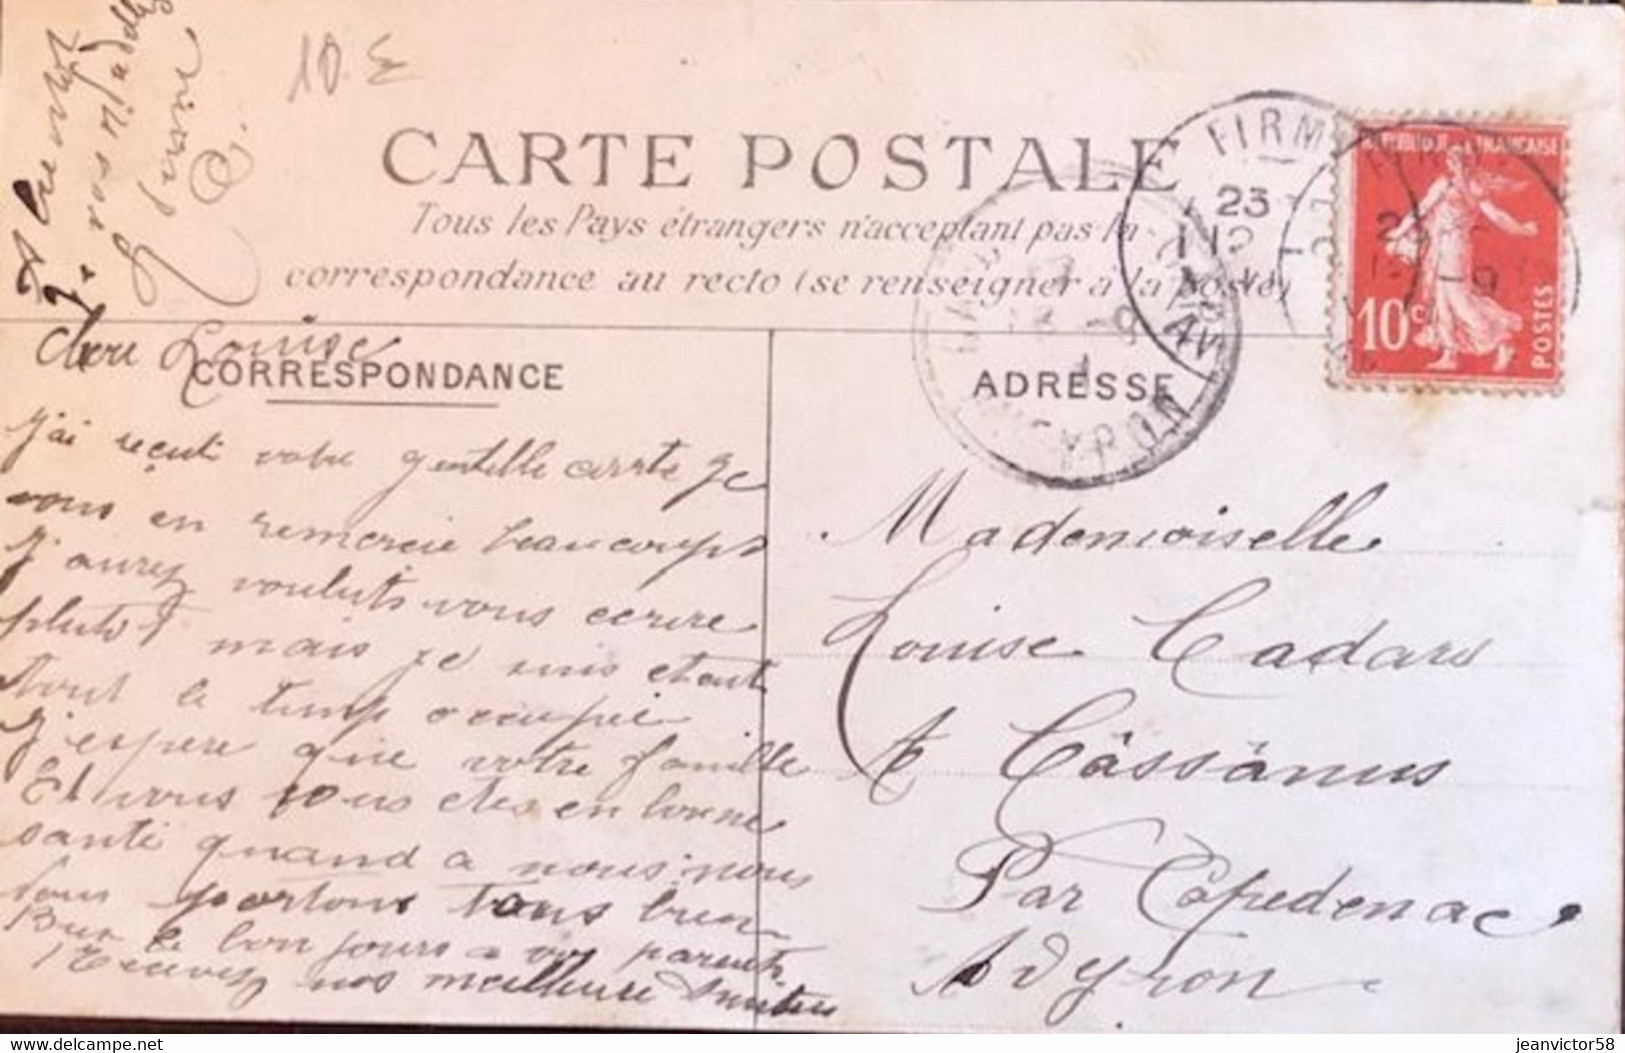 10 E
CARTE POSTALE
Tous les Pays étrangers n'acceptant pas la
correspondance au recto (se renseigner à la poste)
FIRM
23
12
REPUBLIQUE FRANÇAISE
10c
POSTES
Chere Louise
CORRESPONDANCE
J'ai reçuti votre gentille carrte Je
vous en remercie beaucoups
J'aurez vouluts vous ecrire
plutot mais je suis etout
tout le temp occupée
J'espere que votre famille
Et vous vous etes en bonne
santé quand a nous nous
nous portons tous bien
le bonjours a vos parents
Recevez nos meilleure Amities
ADRESSE
Mademoiselle
Louise Cadars
A Câssânus
Par Capedenac
Avyron
jeanvictor58